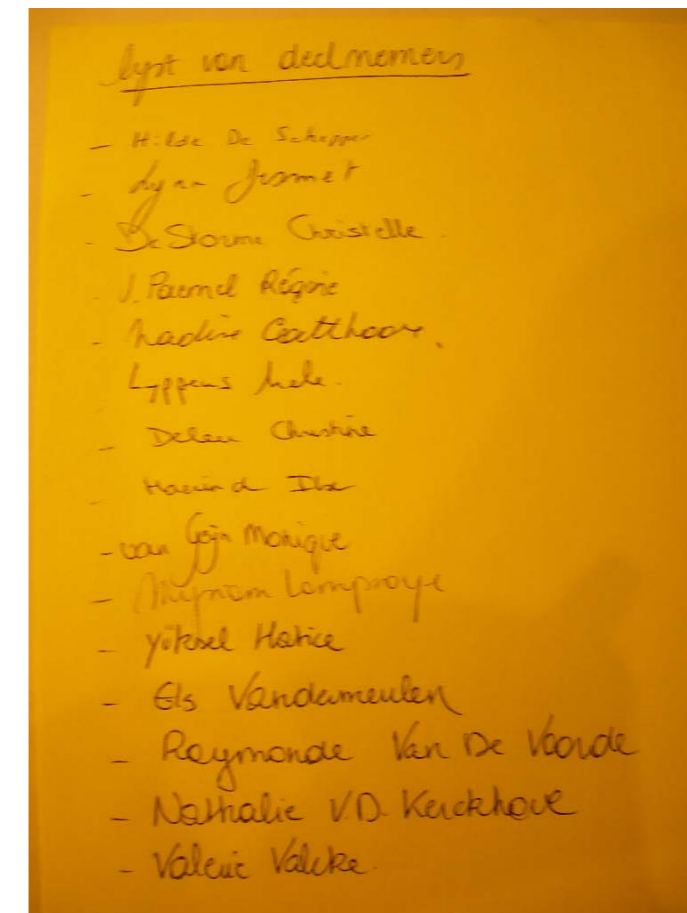 lijst van deelnemers
- Hilde De Schepper
- Lynn Jesmet
- De Storme Christelle.
. J. Paemel Régine
- Nadine Catthoor.
Lyppens
- Deleu Christine
- Ilse
- van Gijn Monique
- Myriam Lamproye
- Yüksel Hatice
- Els Vandermeulen
- Raymonde Van De Voorde
- Nathalie V.D. Kerckhove
- Valerie Valcke.